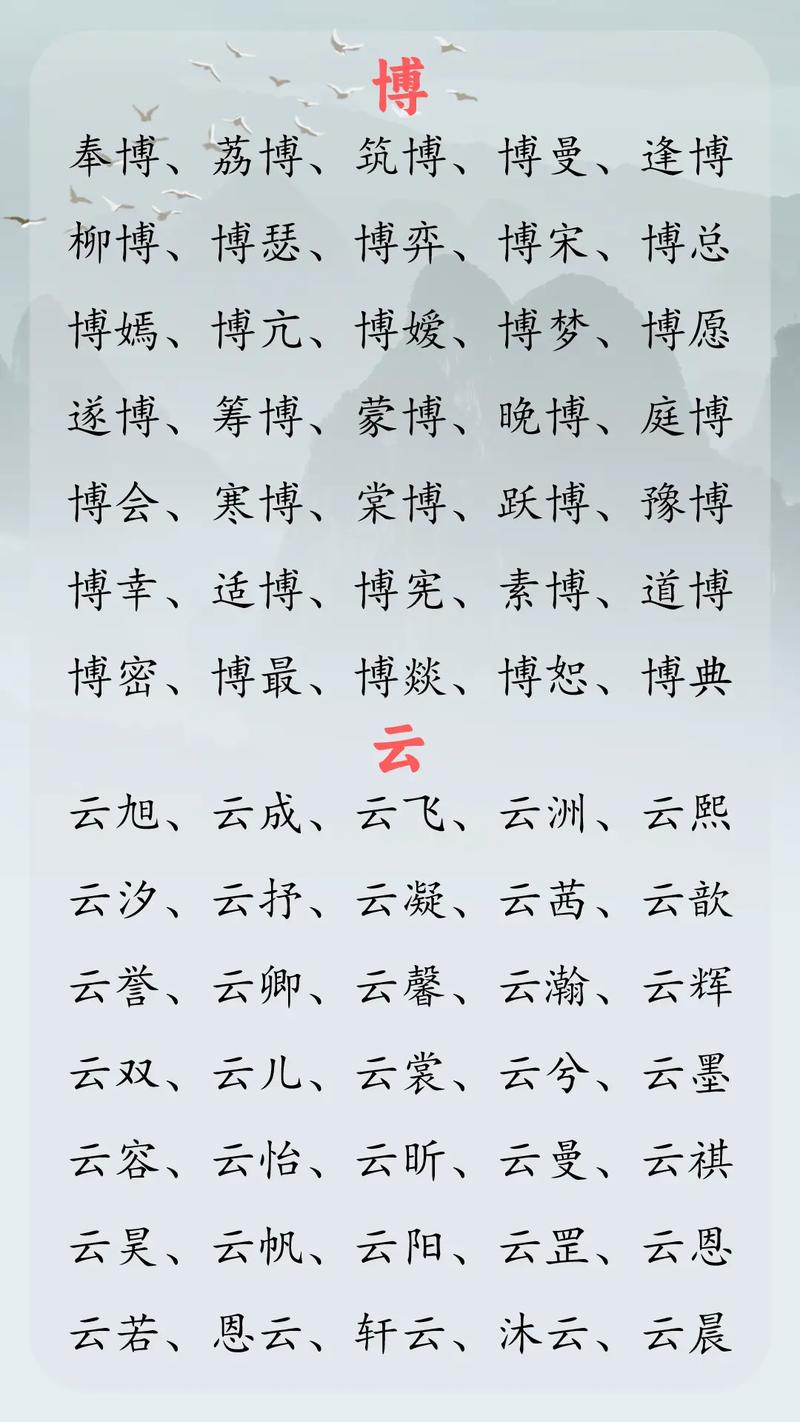 博
奉博、荔博、筑博、博曼、逢博
柳博、博瑟、博弈、博宋、博总
博嫣、博亢、博嫒、博梦、博愿
遂博、筹博、蒙博、晚博、庭博
博会、寒博、棠博、跃博、豫博
博幸、适博、博宪、素博、道博
博密、博最、博燚、博恕、博典
云
云旭、云成、云飞、云洲、云熙
云汐、云抒、云凝、云茜、云歆
云誉、云卿、云馨、云瀚、云辉
云双、云儿、云裳、云兮、云墨
云容、云怡、云昕、云曼、云祺
云昊、云帆、云阳、云罡、云恩
云若、恩云、轩云、沐云、云晨